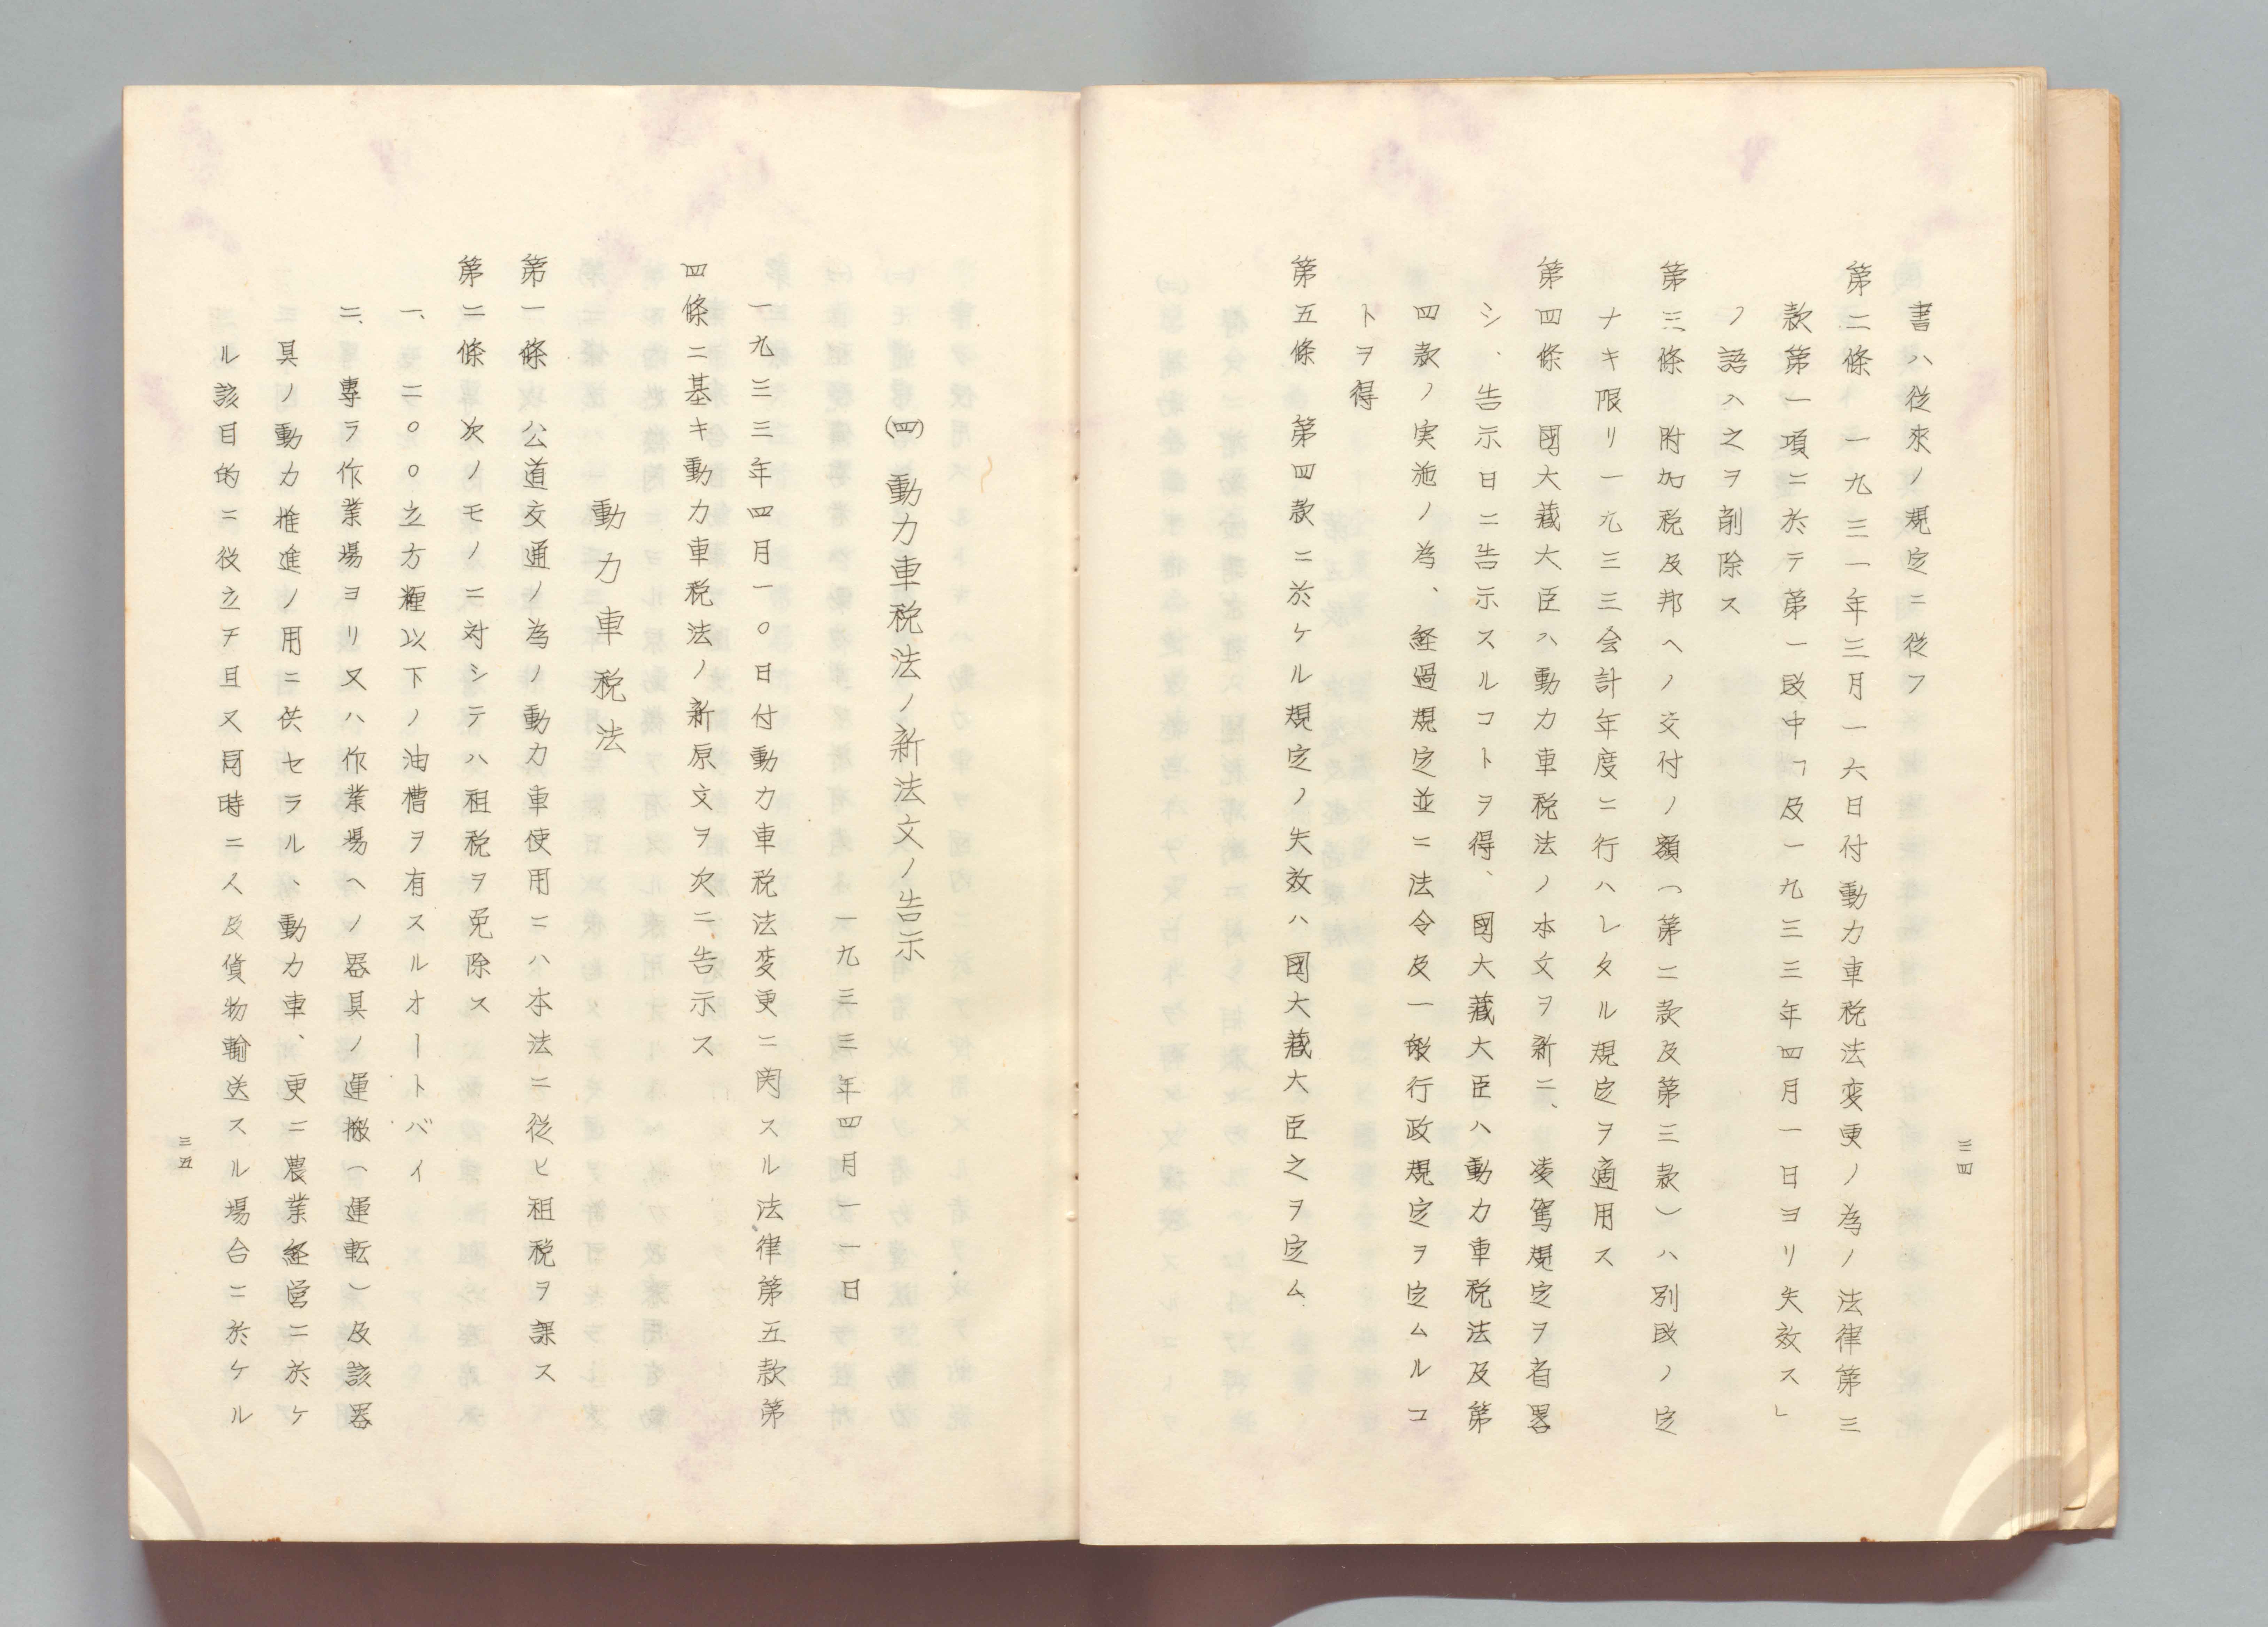 書ハ従來ノ規定ニ従フ
第二條　一九三一年三月一六日付動力車税法変更ノ為ノ法律第三
款第一項ニ於テ第一段中「及一九三三年四月一日ヨリ失效ス」
ノ語ハ之ヲ削除ス
第三條　附加税及邦ヘノ交付ノ額（第二款及第三款）ハ別段ノ定
ナキ限リ一九三三会計年度ニ行ハレタル規定ヲ適用ス
第四條　國大藏大臣ハ動力車税法ノ本文ヲ新ニ、凌駕規定ヲ省畧
シ、告示日ニ告示スルコトヲ得、國大藏大臣ハ動力車税法及第
四款ノ実施ノ為、経過規定並ニ法令及一般行政規定ヲ定ムルコ
トヲ得
第五條　第四款ニ於ケル規定ノ失效ハ國大藏大臣之ヲ定ム
三四
(四)動力車税法ノ新法文ノ告示
一九三三年四月一一日
一九三三年四月一〇日付動力車税法変更ニ関スル法律第五款第
四條ニ基キ動力車税法ノ新原文ヲ次ニ告示ス
動力車税法
第一條　公道交通ノ為ノ動力車使用ニハ本法ニ従ヒ租税ヲ課ス
第二條　次ノモノニ対シテハ租税ヲ免除ス
一、二〇〇立方糎以下ノ油槽ヲ有スルオートバイ
二、専ラ作業場ヨリ又ハ作業場ヘノ器具ノ運搬（運転）及該器
具ノ動力推進ノ用ニ供セラル、動力車、更ニ農業経営ニ於ケ
ル該目的ニ役立チ且又同時ニ人及貨物輸送スル場合ニ於ケル
三五